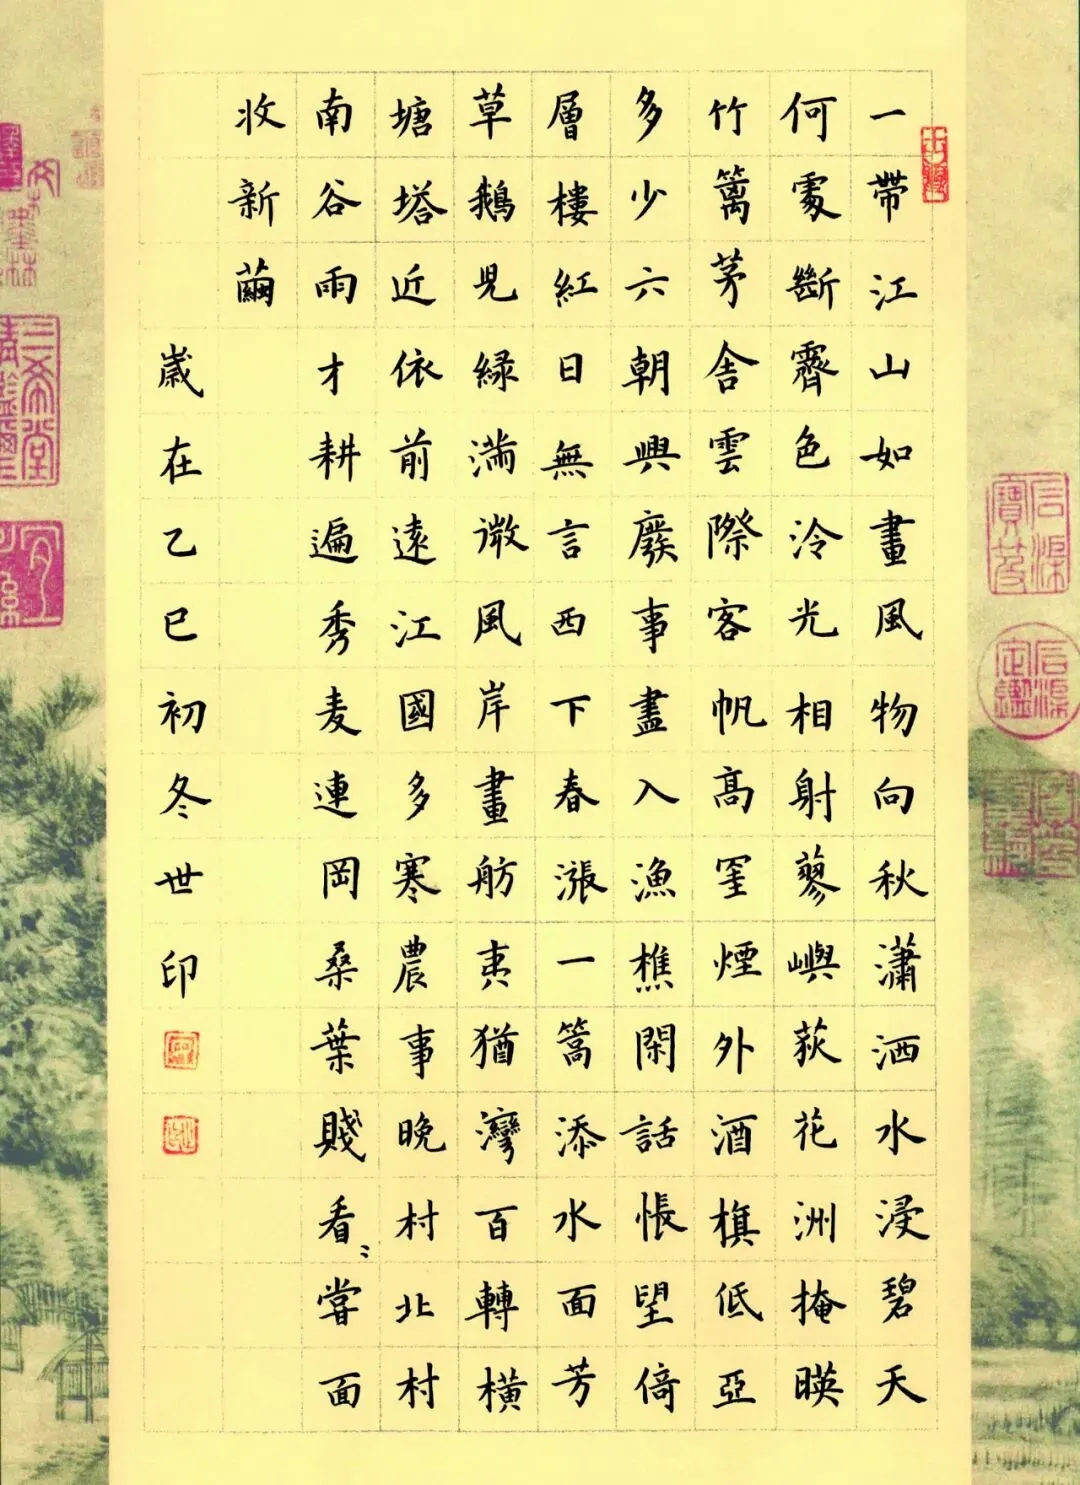 一帶江山如畫風物向秋瀟洒水浸碧天
何處斷霽色泠光相射蓼嶼荻花洲掩暎
竹籬茅舍雲際客帆高罣煙外酒旗低亞
多少六朝興廢事盡入漁樵閑話悵望倚
層樓紅日無言西下春漲一篙添水面芳
草鵝兒綠滿微風岸畫舫夷猶灣百轉橫
塘塔近依前遠江國多寒農事晚村北村
南谷雨才耕遍秀麦連岡桑葉賤看〻嘗面
收新繭
歲在乙巳初冬世印